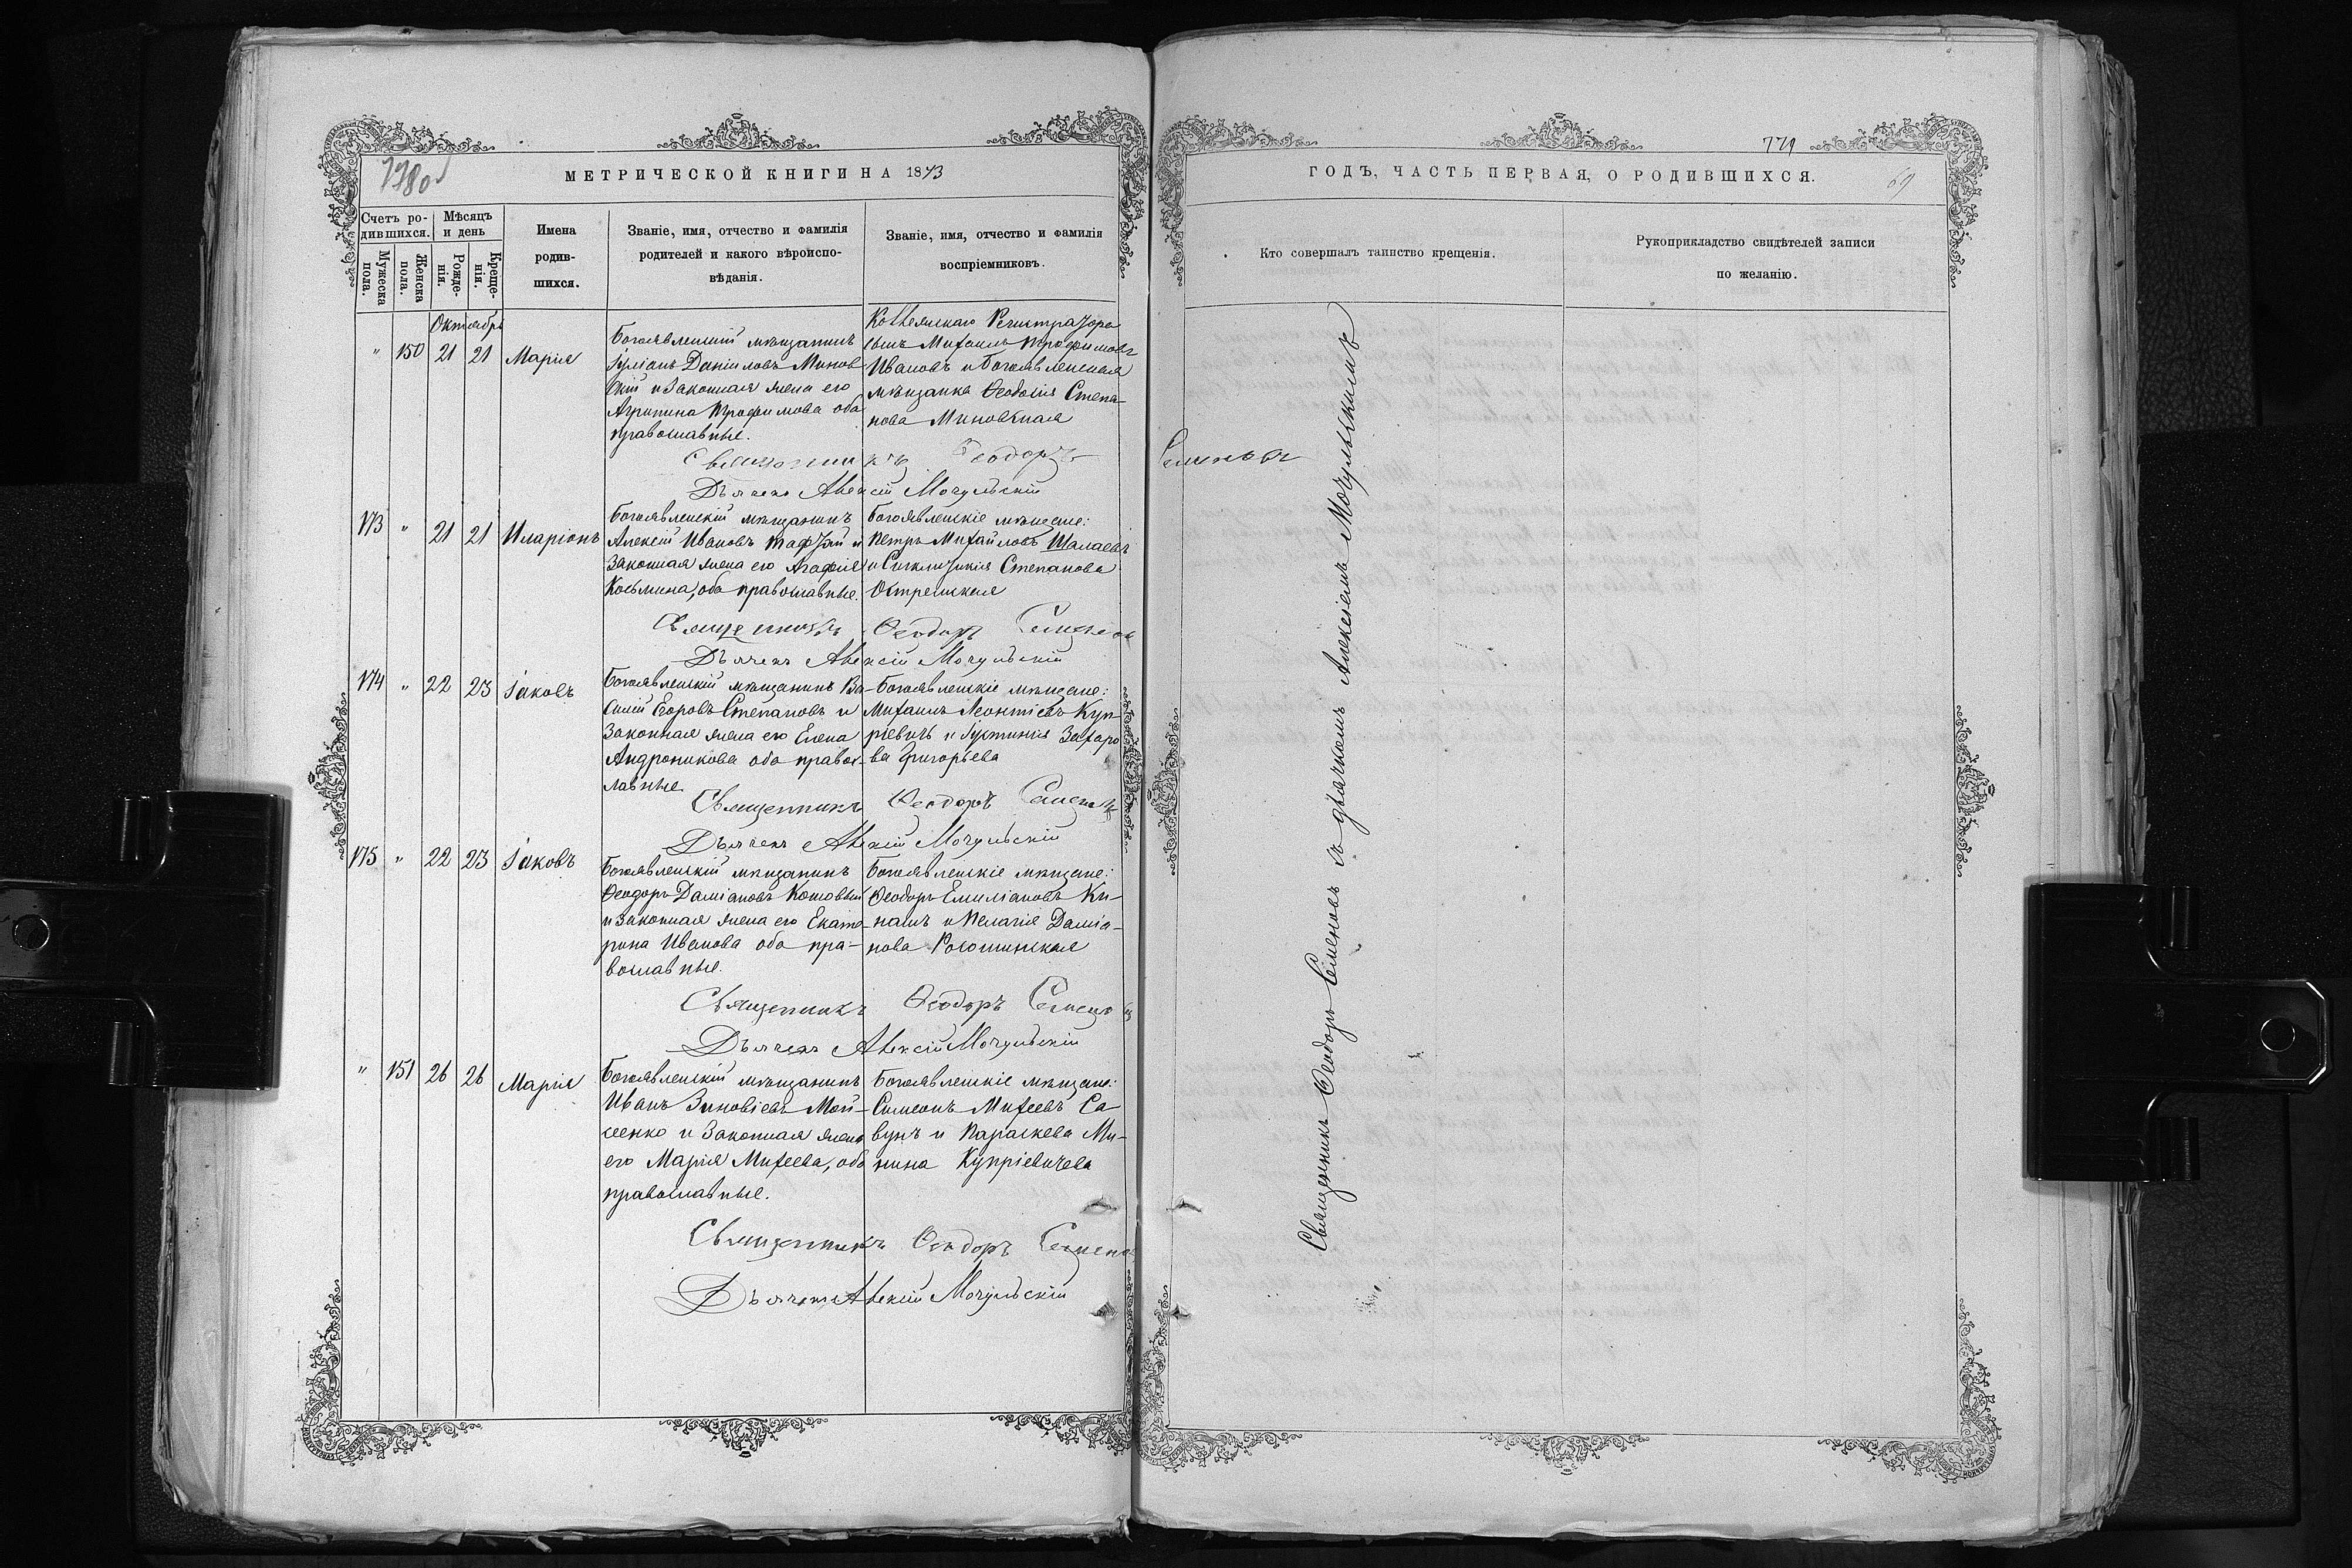 1780
МЕТРИЧЕСКОЙ КНИГИ НА 1873
Счетъ ро-
дившихся.
Мѣсяцъ
и день
Мужеска
пола.
Женска
пола.
Рожде-
нія.
Креще-
нія.
Имена
родив-
шихся.
Званіе, имя, отчество и фамилія
родителей и какого вѣроиспо-
вѣданія.
Званіе, имя, отчество и фамилія
воспріемниковъ.
Октябрь
" 150 21 21 Марія
Богоявленскій мѣщанинъ
Іуліанъ Даніиловъ Минов-
скій и законная жена его
Агрипина Трофимова оба
православные.
Регистратора
сынъ Михаилъ Трофимовъ
Ивановъ и Богоявленская
мѣщанка Ѳеодосія Степа-
нова Миновская
Священникъ Ѳеодоръ Семеновъ
Дьячекъ Алексій Мочульскій
173 " 21 21 Иларіонъ
Богоявленскій мѣщанинъ
Алексій Ивановъ и
законная жена его Агафія
Косьмина, оба православные.
Богоявленскіе мѣщане:
Петръ Михайловъ Шалаевъ
и Сигклитикія Степанова
Острешская
Священникъ Ѳеодоръ Семеновъ
Дьячекъ Алексій Мочульскій
174 " 22 23 Іаковъ
Богоявленскій мѣщанинъ Ва-
силій Егоровъ Степановъ и
законная жена его Елена
Андроникова оба правос-
лавные
Богоявленскіе мѣщане:
Михаилъ Леонтіевъ Куп-
ріевичъ и Іустинія Захаро
ва Григорьева
Священникъ Ѳеодоръ Семеновъ
Дьячекъ Алексій Мочульскій
175 " 22 23 Іаковъ
Богоявленскій мѣщанинъ
Ѳеодоръ Даміановъ Котовый
и законная жена его Екате-
рина Иванова оба пра-
вославные.
Богоявленскіе мѣщане:
Ѳеодоръ Емиліановъ Ки-
нашъ и Пелагія Даміа-
нова
Священникъ Ѳеодоръ Семеновъ
Дьячекъ Алексій Мочульскій
" 151 26 26 Марія
Богоявленскій мѣщанинъ
Иванъ Зиновіевъ Мой-
сеенко и законная жена
его Марія Михеева, оба
православные.
Богоявленскіе мѣщане:
Симеонъ Михеевъ Са
вунъ и Параскева Ми-
нина Купріевичева
Священникъ Ѳеодоръ Семеновъ
Дьячекъ Алексій Мочульскій
779
ГОДЪ, ЧАСТЬ ПЕРВАЯ, О РОДИВШИХСЯ.
69
Кто совершалъ таинство крещенія.
Рукоприкладство свидѣтелей записи
по желанію.
Священникъ Ѳеодоръ Семеновъ съ дьячкомъ Алексіемъ Мочульскимъ